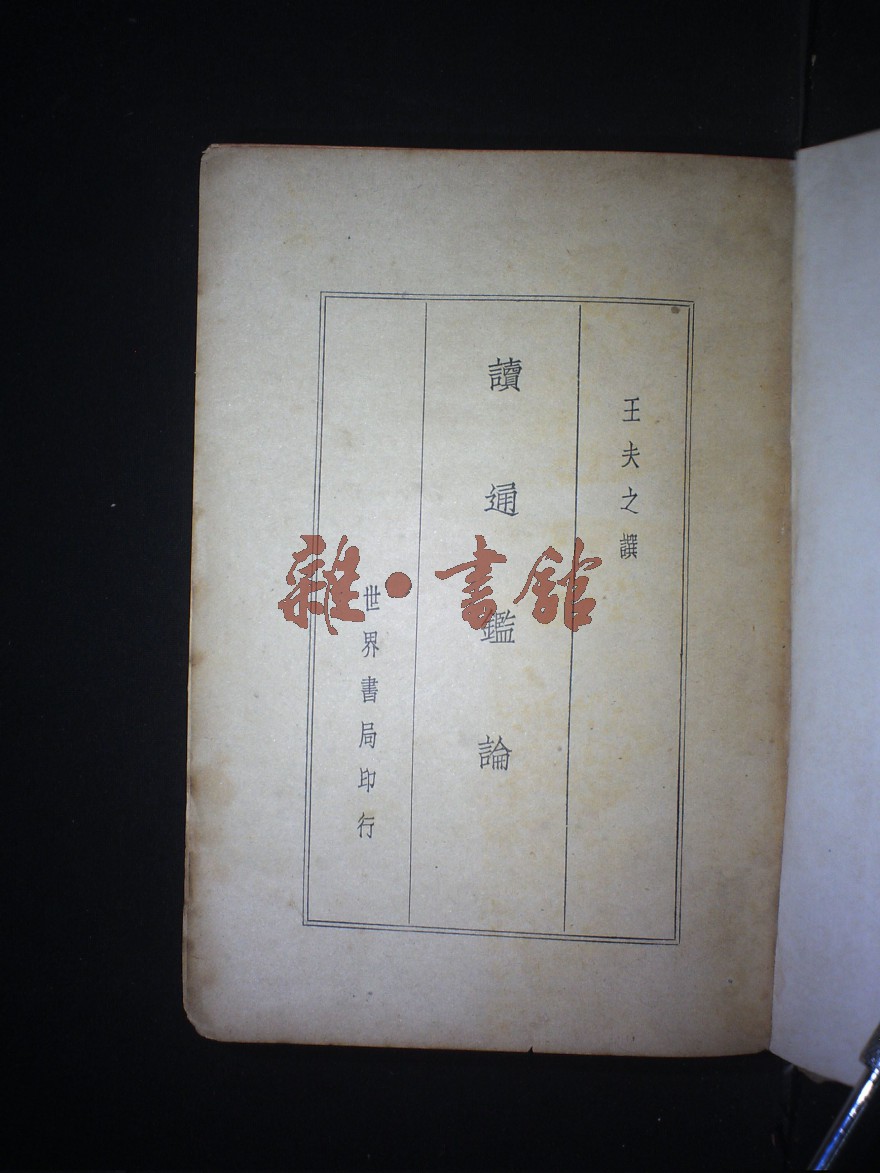 王夫之譔
讀通鑑論
世界書局印行
雜·書館